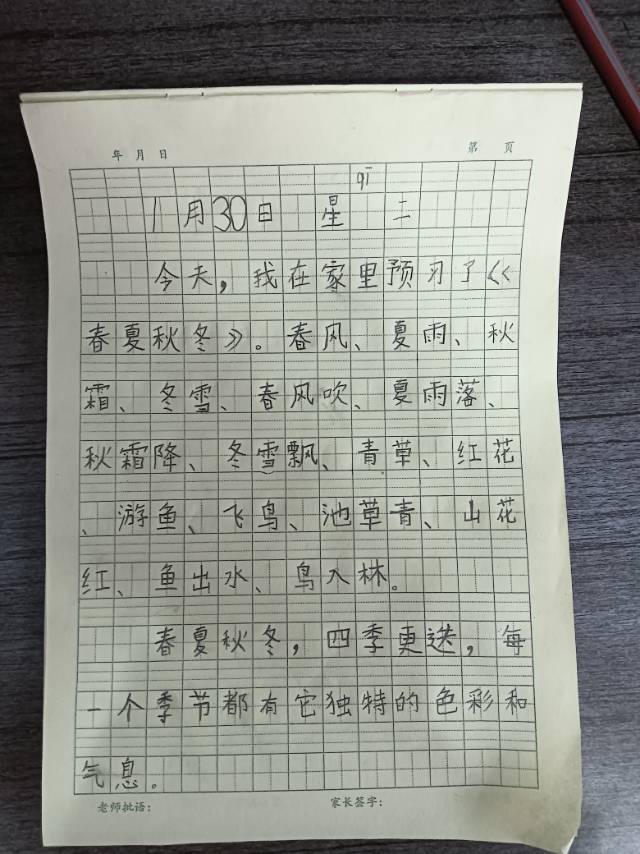 年 月 日 第 页
qī
1月30日 星 二
今天,我在家里预习了《
春夏秋冬》。春风、夏雨、秋
霜、冬雪、春风吹、夏雨落、
秋霜降、冬雪飘、青草、红花
、游鱼、飞鸟、池草青、山花
红、鱼出水、鸟入林。
春夏秋冬,四季更迭,每
一个季节都有它独特的色彩和
气息。
老师批语: 家长签字: